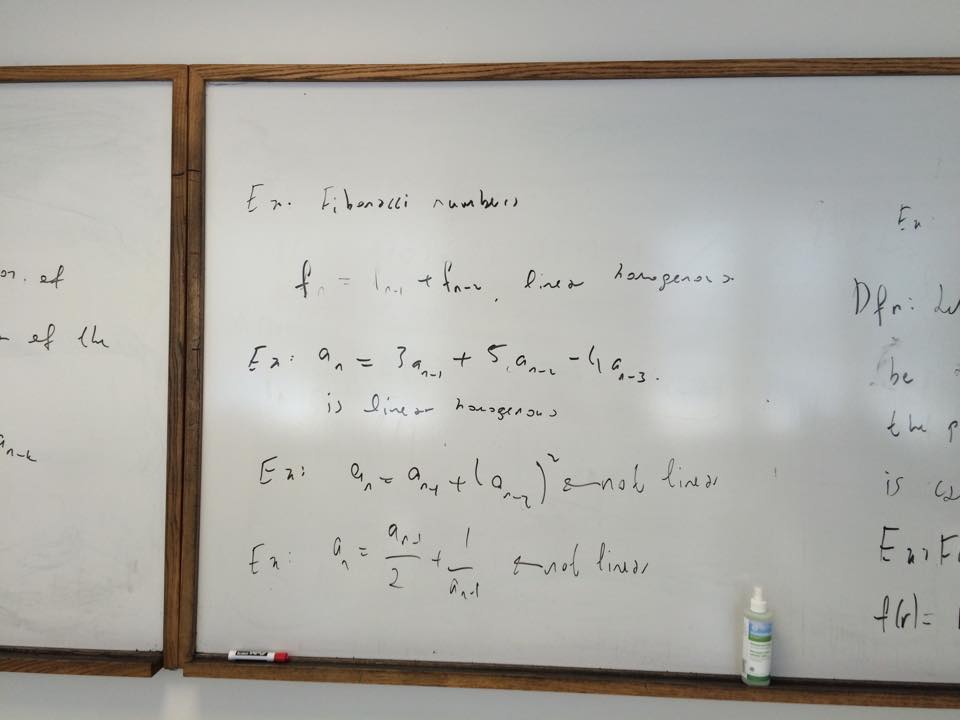 on. of
of the
a_{n-k}
Ex. Fibonacci numbers
f_n = f_{n-1} + f_{n-2}, linear homogenous
Ex: a_n = 3a_{n-1} + 5a_{n-2} - 4a_{n-3}.
is linear homogenous
Ex: a_n = a_{n-1} + (a_{n-2})^2 ← not linear
Ex: a_n = a_{n-1}/2 + 1/a_{n-1} ← not linear
Ex:
Dfn:
be
the p
is
Ex:
f(r) =